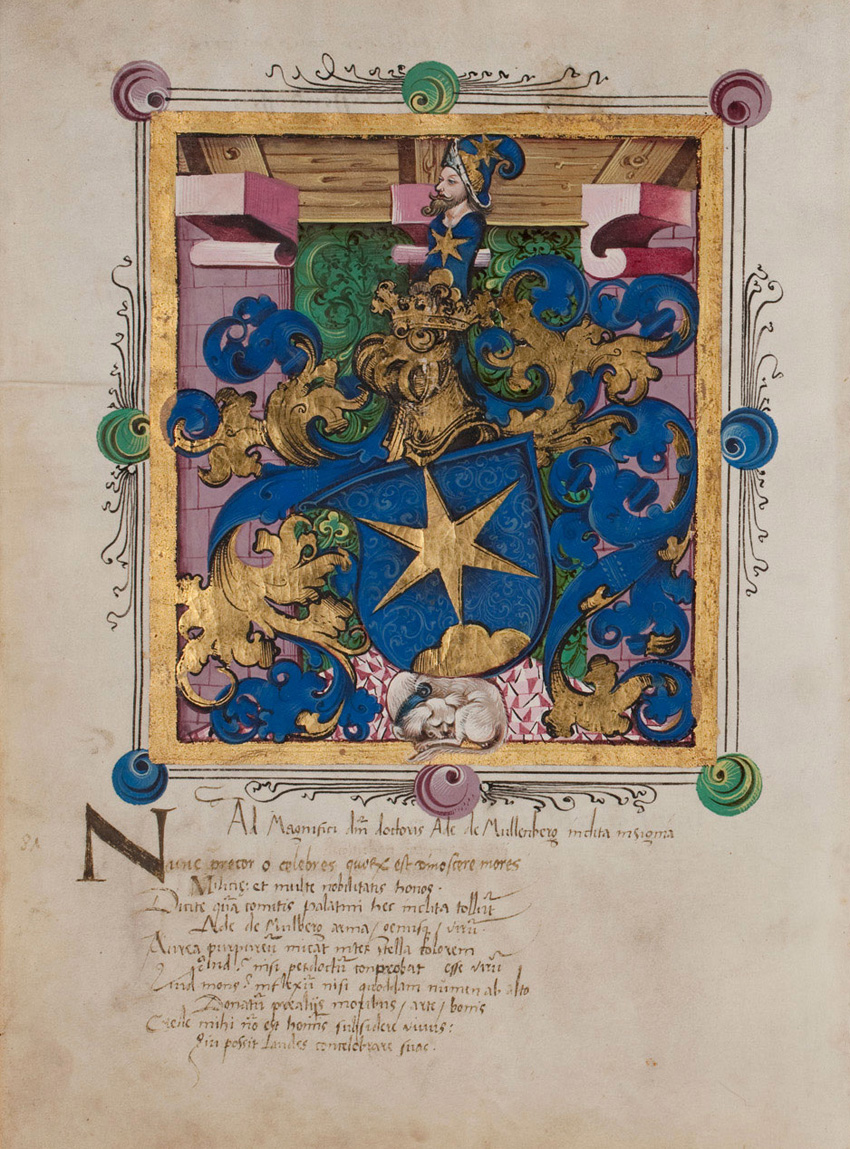 Ad Magnifici dn̄i doctoris Ade de Mullenberg inclita insignia
Nunc precor o celebres quorꝝ est dinoscere mores
Milicie: et multe nobilitatis honos.
Dicite quā comitis palatini hec inclita tollūt
Ade de Mulberg arma / virū.
Aurea purpureū micat inter stella colorem
Quid? nisi perdoctū conprobat esse virū
Quid mons? inflexū nisi quoddam numen ab alto
Donatū moribus / arte / bonis
Crede mihi nō est homīs subsidere vivus:
Qui possit laudes concelebrare suas.